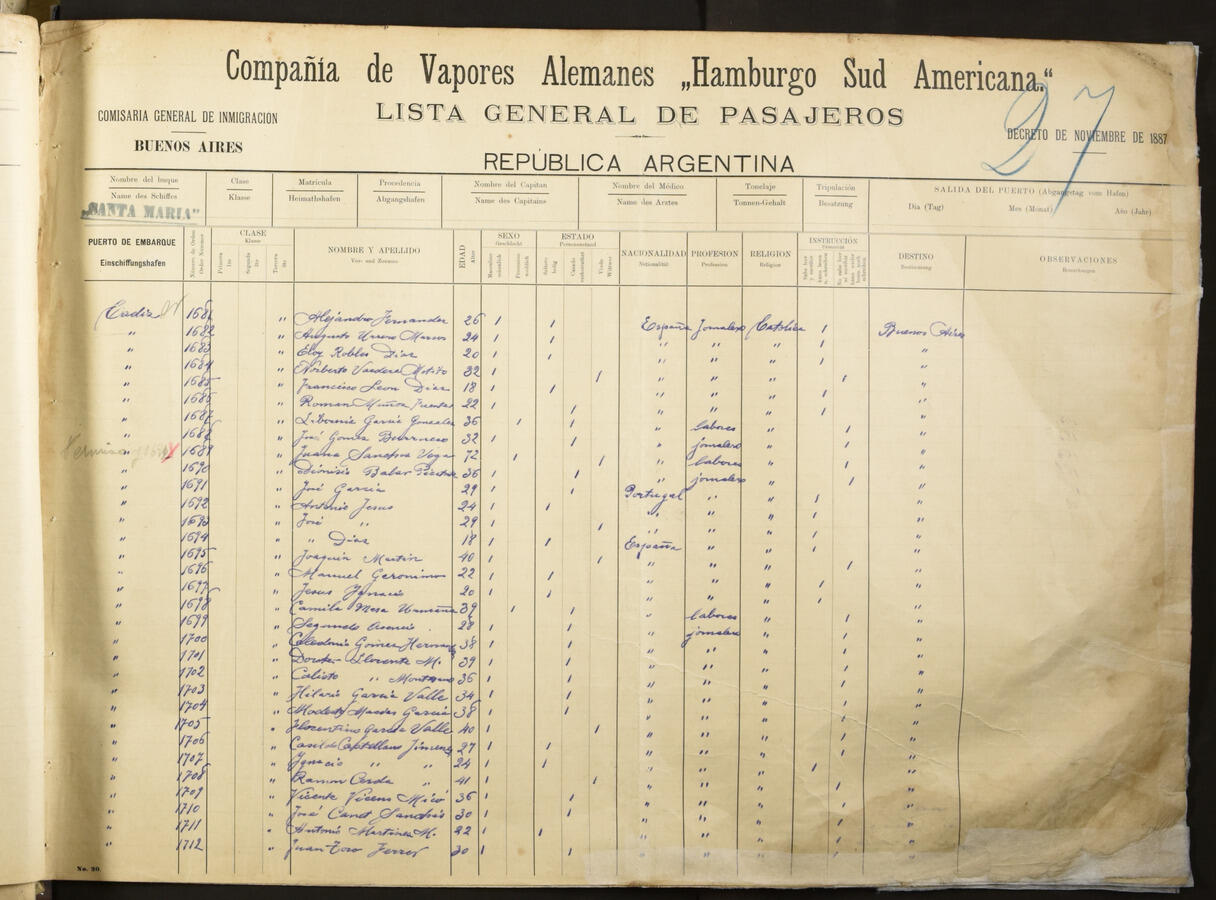 Compañía de Vapores Alemanes „Hamburgo Sud Americana.“
COMISARIA GENERAL DE INMIGRACION
LISTA GENERAL DE PASAJEROS
27
DECRETO DE NOVIEMBRE DE 1887
BUENOS AIRES
REPÚBLICA ARGENTINA
Nombre del buque Clase Matrícula Procedencia Nombre del Capitan Nombre del Médico Tonelaje Tripulación SALIDA DEL PUERTO (Abgangstag vom Hafen)
Name des Schiffes Klasse Heimathshafen Abgangshafen Name des Capitains Name des Arztes Tonnen-Gehalt Besatzung Dia (Tag) Mes (Monat) Año (Jahr)
"SANTA MARIA"
PUERTO DE EMBARQUE CLASE NOMBRE Y APELLIDO EDAD SEXO ESTADO NACIONALIDAD PROFESION RELIGION INSTRUCCIÓN DESTINO OBSERVACIONES
Einschiffungshafen Klasse Vor- und Zuname Alter Geschlecht Personenstand Nationalität Profession Religion Bestimmung Bemerkungen
Cadiz 1681 " Alejandro Fernandez 26 1 1 España Jornalero Católica 1 Buenos Aires
" 1682 " Augusto Marcos 24 1 1 " " " 1 "
" 1683 " Eloy Robles Diaz 20 1 1 " " " 1 "
" 1684 " Norberto 32 1 1 " " " 1 "
" 1685 " Francisco Leon Diaz 18 1 1 " " " 1 "
" 1686 " Roman Muñoz 22 1 1 " " " 1 "
" 1687 " Garcia Gonzalez 36 1 1 " labores " 1 "
" 1688 " José Gomez 32 1 1 " jornalero " 1 "
" 1689 " Juana Sanchez Vega 72 1 1 " labores " 1 "
" 1690 " Dionisio 36 1 1 " jornalero " 1 "
" 1691 " José Garcia 29 1 Portugal " " 1 "
" 1692 " Antonio Jesus 24 1 1 " " " 1 "
" 1693 " José " 29 1 1 " " " 1 "
" 1694 " " Diaz 18 1 1 España " " 1 "
" 1695 " Joaquin Martin 40 1 1 " " " 1 "
" 1696 " Manuel Geronimo 22 1 1 " " " 1 "
" 1697 " Jesus Ignacio 20 1 1 " " " 1 "
" 1698 " Camila Mesa 39 1 1 " labores " 1 "
" 1699 " Segundo 28 1 1 " jornalero " 1 "
" 1700 " Celedonio Gomez 38 1 1 " " " 1 "
" 1701 " Llorente M. 39 1 1 " " " 1 "
" 1702 " Calisto " 36 1 1 " " " 1 "
" 1703 " Hilario Garcia Valle 34 1 1 " " " 1 "
" 1704 " Modesto Garcia 38 1 1 " " " 1 "
" 1705 " Florentino Garcia Valle 40 1 1 " " " 1 "
" 1706 " Castellano Jimenez 27 1 1 " " " 1 "
" 1707 " Ignacio " " 24 1 1 " " " 1 "
" 1708 " Ramon Cerda " 41 1 1 " " " 1 "
" 1709 " Vicente Vicens Micó 36 1 1 " " " 1 "
" 1710 " José Canet 30 1 1 " " " 1 "
" 1711 " Antonio Martinez M. 22 1 1 " " " 1 "
" 1712 " Juan Toro Ferrer 30 1 1 " " " 1 "
No. 20.